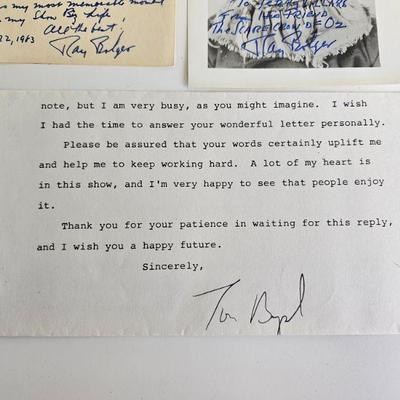 as my most memorable moment
in my Show Biz Life
All the best!
22, 1983
Ray Bolger
The Scarecrow of "Oz"
Ray Bolger
note, but I am very busy, as you might imagine.  I wish
I had the time to answer your wonderful letter personally.
Please be assured that your words certainly uplift me
and help me to keep working hard.  A lot of my heart is
in this show, and I'm very happy to see that people enjoy
it.
Thank you for your patience in waiting for this reply,
and I wish you a happy future.
Sincerely,
Tom Byrd